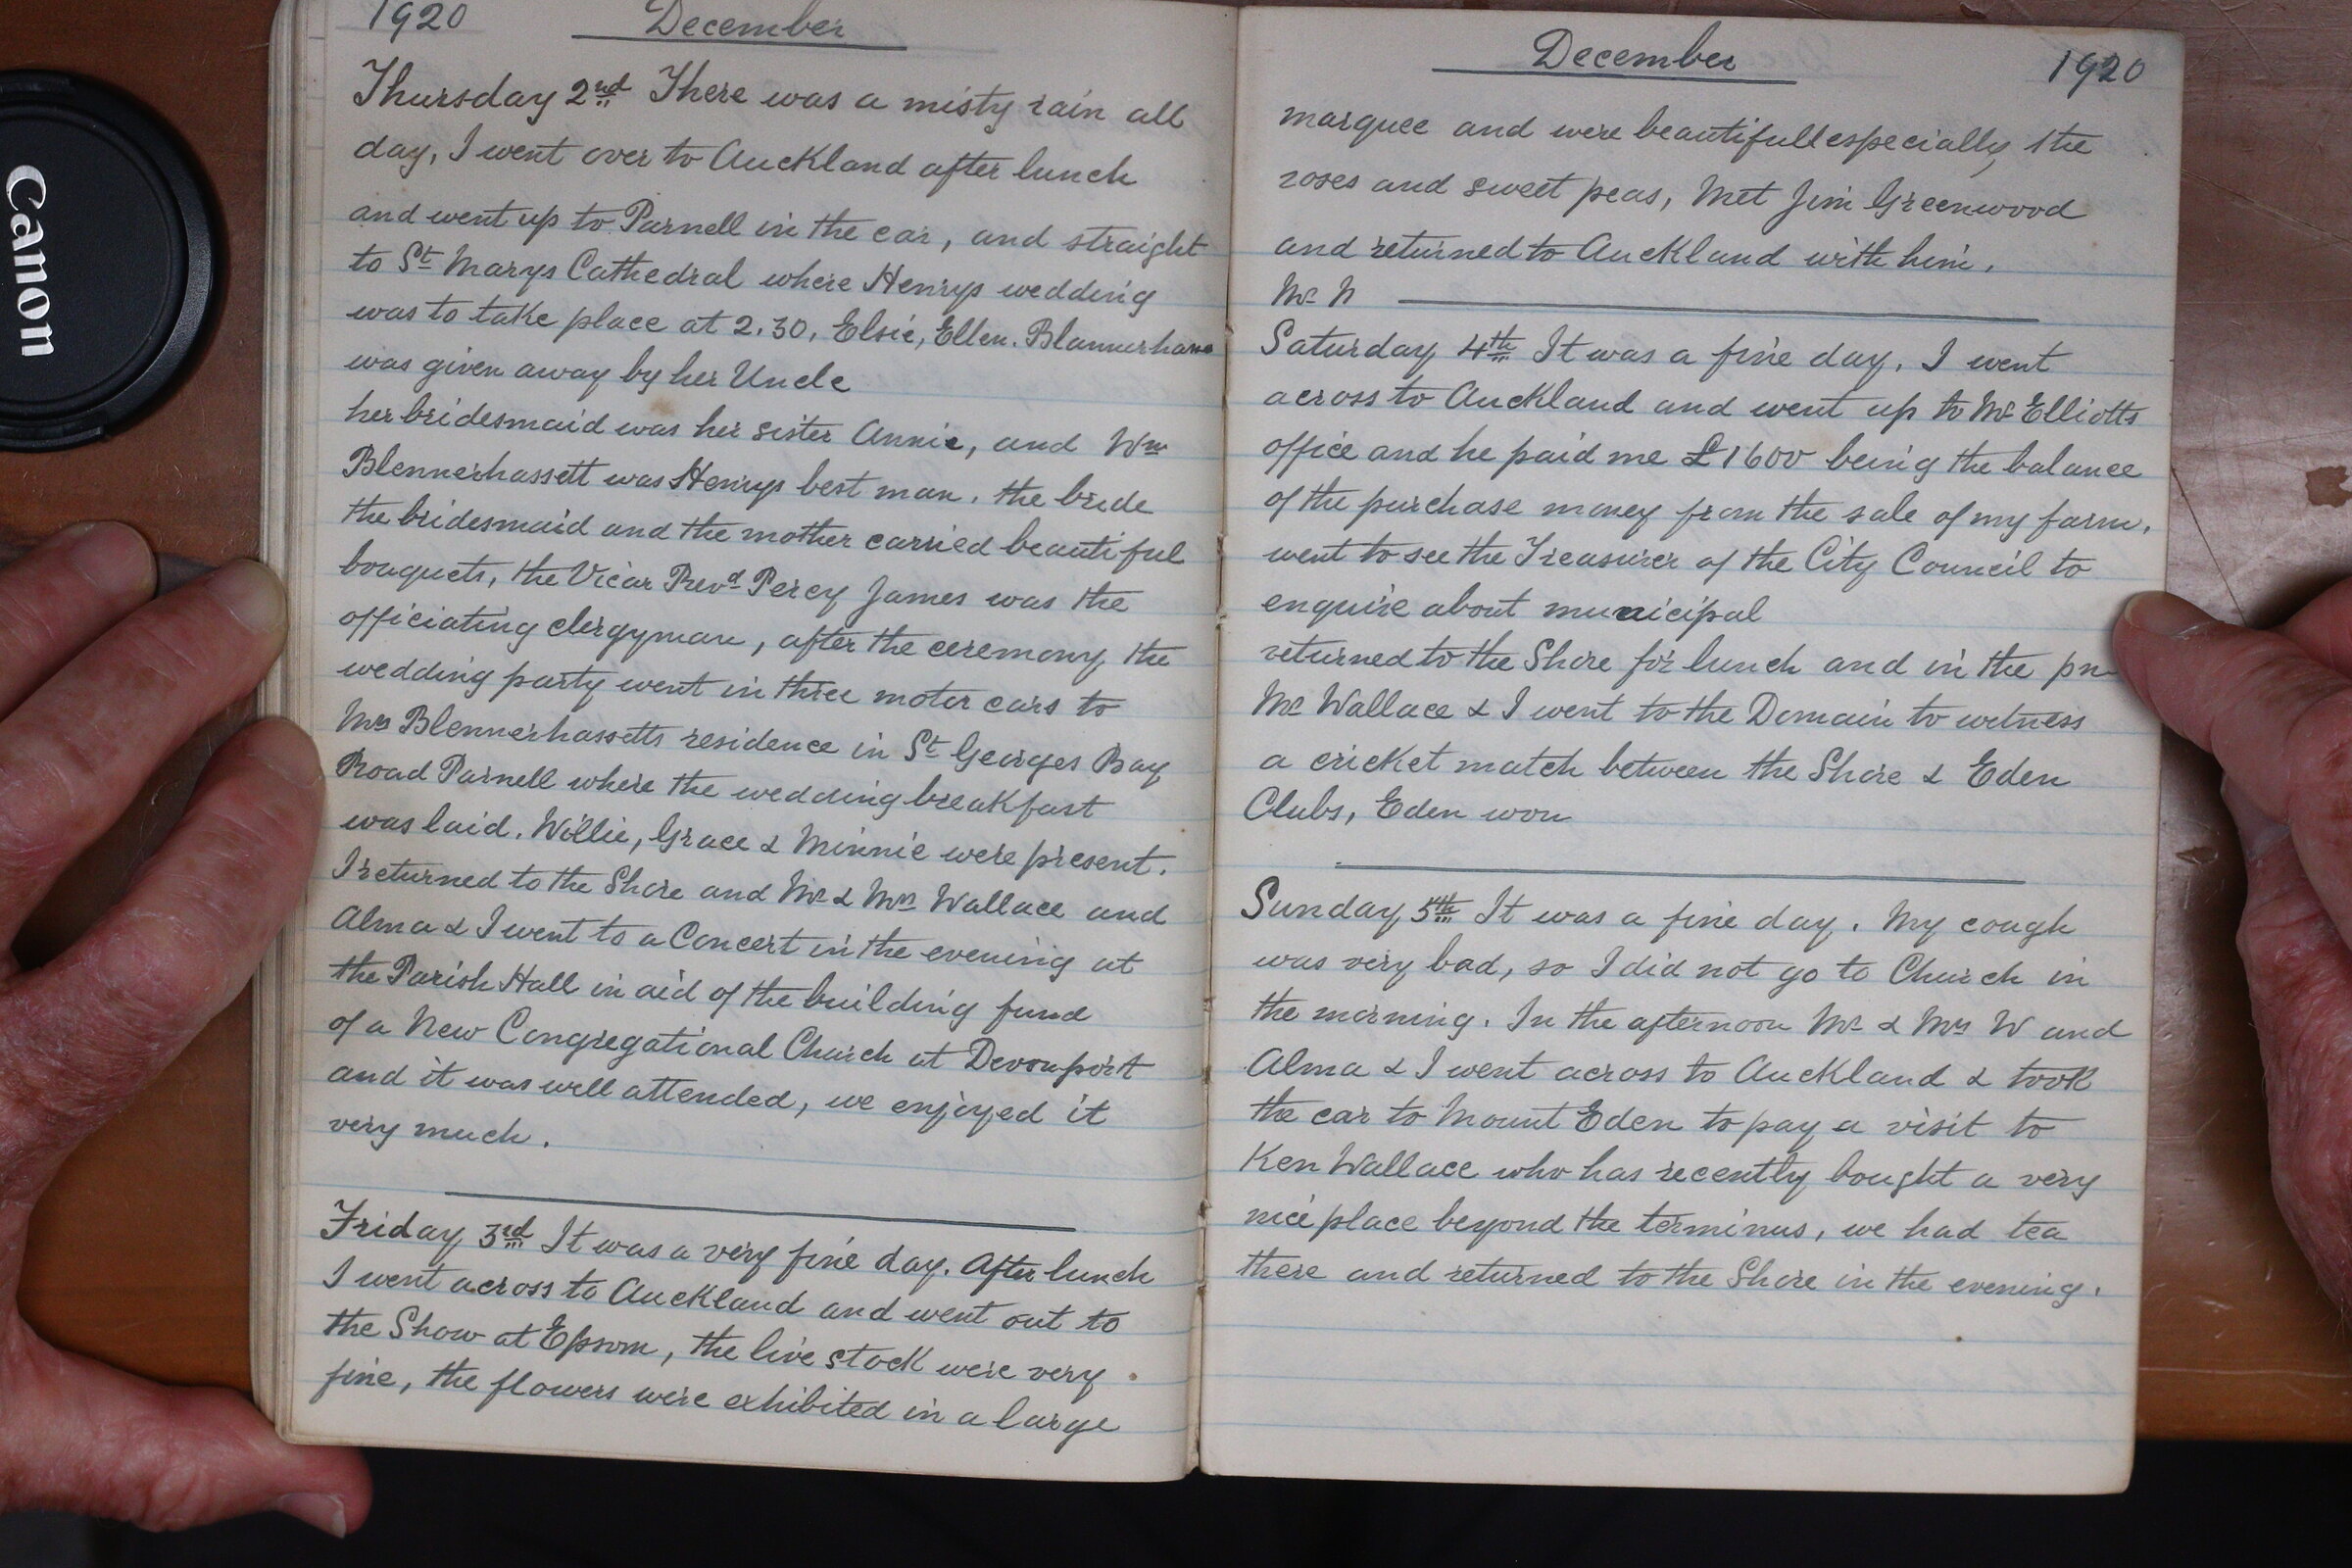 Canon
1920 December
Thursday 2nd There was a misty rain all
day, I went over to Auckland after lunch
and went up to Parnell in the car, and straight
to St Marys Cathedral where Henrys wedding
was to take place at 2.30, Elsie, Ellen. Blennerhass
was given away by her Uncle
her bridesmaid was her sister Annie, and Wm
Blennerhassett was Henrys best man. the bride
the bridesmaid and the mother carried beautiful
bouquets, the Vicar Revd Percy James was the
officiating clergyman, after the ceremony the
wedding party went in three motor cars to
Mrs Blennerhassetts residence in St Georges Bay
Road Parnell where the wedding breakfast
was laid. Willie, Grace & Minnie were present.
I returned to the Shore and Mr & Mrs Wallace and
Alma & I went to a Concert in the evening at
the Parish Hall in aid of the building fund
of a New Congregational Church at Devonport
and it was well attended, we enjoyed it
very much.
Friday 3rd It was a very fine day. After lunch
I went across to Auckland and went out to
the Show at Epsom, the live stock were very
fine, the flowers were exhibited in a large
December 1920
marquee and were beautifull especially the
roses and sweet peas, Met Jim Greenwood
and returned to Auckland with him.
Saturday 4th It was a fine day. I went
across to Auckland and went up to Mr Elliotts
office and he paid me £1600 being the balance
of the purchase money from the sale of my farm.
went to see the Treasurer of the City Council to
enquire about municipal
returned to the Shore for lunch and in the pm
Mr Wallace & I went to the Domain to witness
a cricket match between the Shore & Eden
Clubs, Eden won
Sunday 5th It was a fine day. My cough
was very bad, so I did not go to Church in
the morning. In the afternoon Mr & Mrs W and
Alma & I went across to Auckland & took
the car to Mount Eden to pay a visit to
Ken Wallace who has recently bought a very
nice place beyond the terminus, we had tea
there and returned to the Shore in the evening.